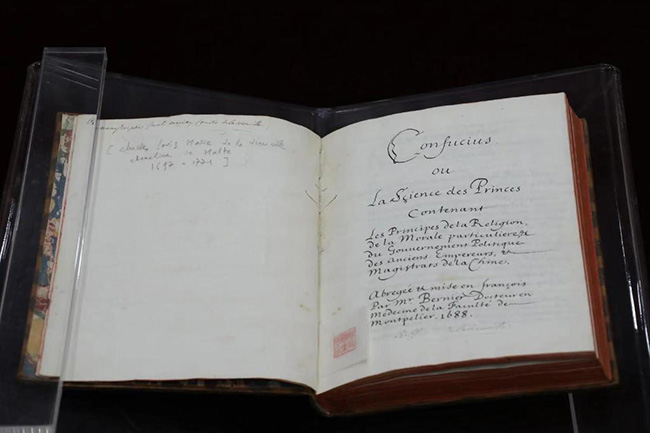 [ Charles Louis Marie de la Vieuville
chevalier de Malte
1697 - 1721 ]
Confucius
ou
La Sçience des Princes
Contenant
Les Principes de la Religion,
de la Morale particuliere,
du Gouvernement Politique
des Anciens Empereurs, &
Magistrats de la Chine.
Abregée & mise en françois
Par Mr Bernier Docteur en
Médecine de la Faculté de
Montpelier. 1688.